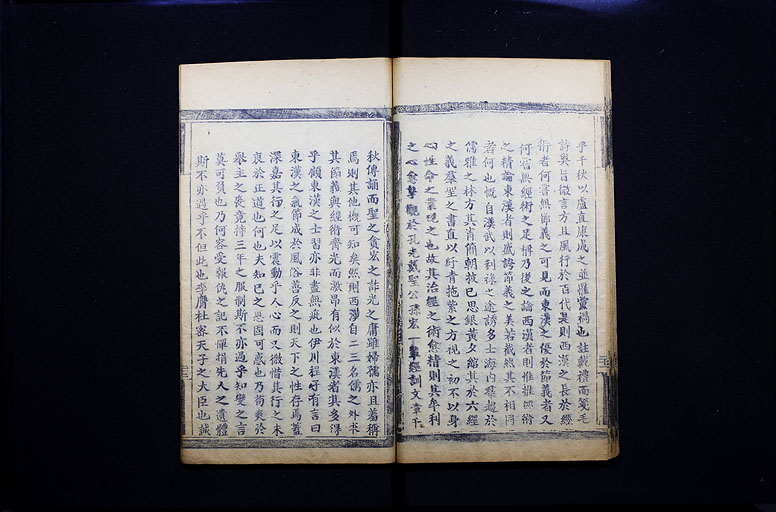 乎千秋以盧直康成之並罹黨禍也註戴禮而箋毛
詩奧旨微言方且風行於百代是則西漢之長於經
術者何嘗無節義之可見而東漢之優於節義者又
何嘗無經術之足稱乃後之論西漢者則惟推經術
之精論東漢者則盛誇節義之美若截然其不相同
者何也慨自漢武以利祿之途誘多士海內雍趨於
儒雅之林方其青簡朝披已思銀黃夕綰其於六經
之義羣聖之書直以紆青拖紫之方視之初不以身
心性命之業視之也故其治經之術愈精則其牟利
之心愈摯觀於孔光戴聖公孫宏一輩經訓文章千
秋傳誦而聖之貪宏之詐光之庸雖婦孺亦且羞稱
焉則其他慨可知矣然則西漢自二三名儒之外求
其節義與經術齊光而激昂有似於東漢者其多得
乎顧東漢之士習亦非盡無疵也伊川程子有言曰
東漢之氣節成於風俗善反之則天下之性存焉蓋
深嘉其行之足以震動乎人心而又微惜其行之未
衷於正道也何也夫知己之恩固可感也乃荀爽於
舉主之喪竟持三年之服制斯不亦過乎知變之言
莫可須也乃何容受報仇之記不憚捐先人之遺體
斯不亦過乎不但此也李膺杜密天子之大臣也誠